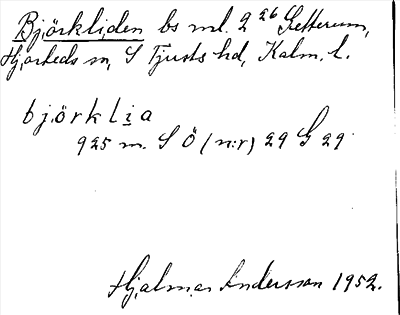 Björkliden bs ml. 2 26 Getterum,
Hjorteds sn, S Tjusts hd, Kalm. l.
björklia
925 m. S Ö (n:r) 29 G 29
Hjalmar Andersson 1952.